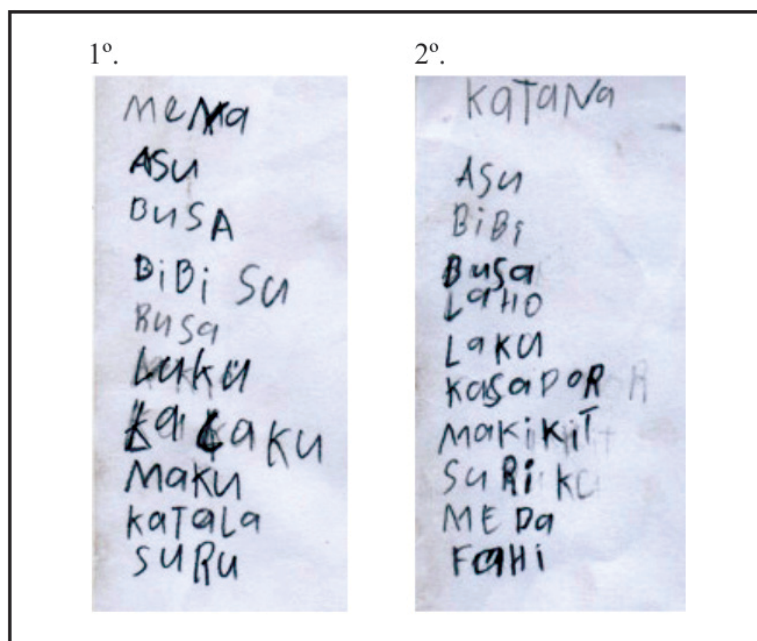 1º.
ASU
BUSA
BiBi SU
RUSa
LUKU
MaKU
KaTaLa
SURU
2º.
KaTaNa
ASU
BiBi
BUSa
LaHO
LaKU
KaSaDOR
MaKiKiT
MEDa
FaHi